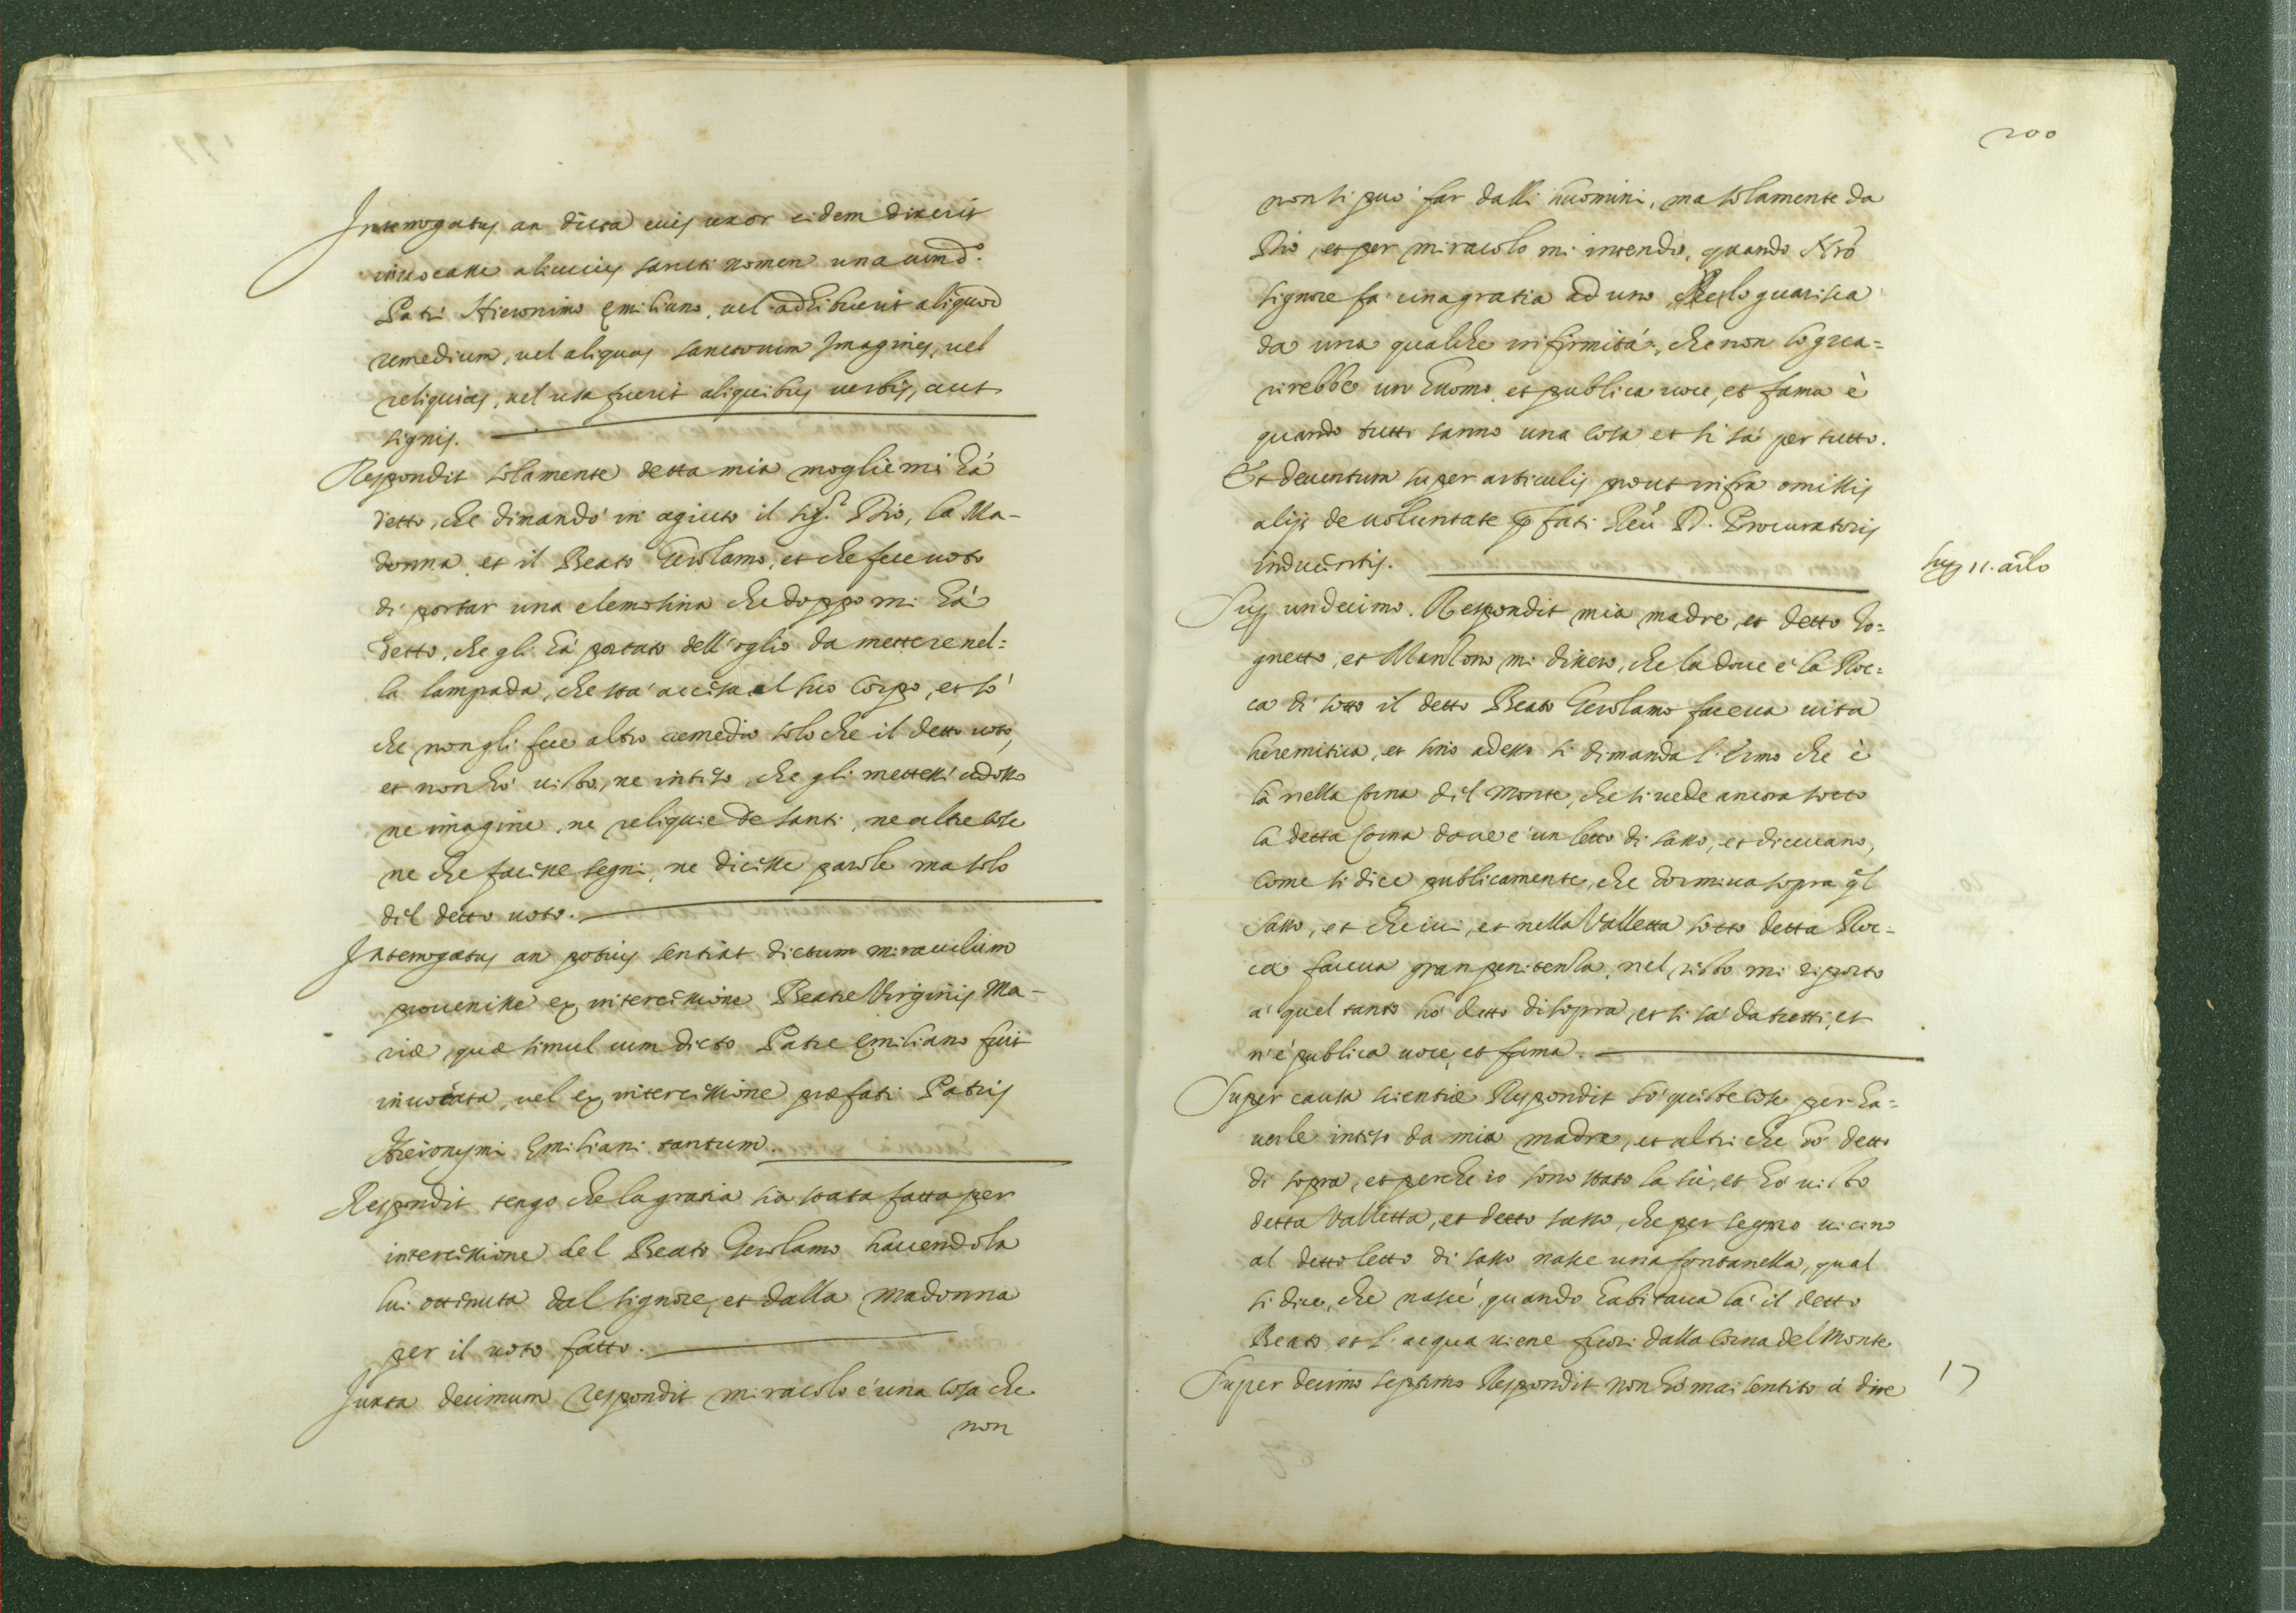 Interrogatus an dicta eius uxor eidem dixerit
inuocasse alicuius sancti nomen una cum d.º
Patri Hieronimo Emiliano, uel adhibuerit aliquod
remedium, uel aliquas sanctorum Imagines, uel
reliquias, uel usa fuerit aliquibus uerbis, aut
signis.
Respondit solamente detta mia moglie mi hà
detto, che dimandò in agiuto il Sig.r Dio, la Ma-
donna, et il Beato Gerolamo, et che fece uoto
di portar una elemosina che doppo mi hà
detto, che gli hà portato dell'oglio da mettere nel=
la lampada, che stà accisa al suo Corpo, et sò
che non gli fece altro remedio solo che il detto uoto,
et non hò uisto, ne inteso che gli mettessi adosso
ne imagine, ne reliquie de santi, ne altre cose
ne che facesse segni, ne dicesse parole ma solo
del detto uoto.
Interrogatus an potius sentiat dictum miraculum
prouenisse ex intercessione Beatæ Virginis Ma-
riæ, quæ simul cum dicto Patre Emiliano fuit
inuocata, uel ex intercessione præfati Patris
Hieronymi Emiliani tantum.
Respondit tengo che la gratia sia stata fatta per
intercessione del Beato Gerolamo hauendola
lui ottenuta dal signore, et dalla madonna
per il uoto fatto.
Iuxta decimum respondit miracolo è una cosa che
non
200
non si può far dalli huomini, ma solamente da
Dio, et per miracolo mi intendo, quando Nrõ
signore fa una gratia ad uno che lo guarisca
da una qualche infirmità, che non lo gua=
rirebbe un huomo, et publica uoce, et fama è
quando tutti sanno una cosa et si sà per tutto.
Et deuentum super articulis prout infra omissis
alijs de uoluntate p̃fati Reũ D. Procuratoris
inducentis.
Sup. 11. artlo
Sup. undecimo. Respondit mia madre, et detto To=
gnetto, et Manzono mi dissero, che la doue è la Roc=
ca di sotto il detto Beato Gerolamo faceua uita
heremitica, et sino adesso si dimanda l'Ermo che è
là nella corna del Monte, che si uede ancora sotto
la detta corna doue è un letto di sasso, et diceuano,
come si dice publicamente, che dormiua sopra q̃l
sasso, et che iui, et nella Valletta sotto detta Roc=
ca faceua gran penitenza, nel resto mi riporto
a quel tanto hò detto di sopra, et si sà da tutti, et
n'è publica uoce, et fama.
Super causa scientiæ Respondit sò queste cose per ha=
uerle inteso da mia madre, et altri che hò detto
di sopra, et perche io sono stato la sù, et hò uisto
detta Valletta, et detto sasso, che per segno uicino
al detto letto di sasso nasce una fontanella, qual
si dice, che nascè, quando habitaua là il detto
Beato, et l'acqua uiene fuori dalla corna del Monte
17
Super decimo septimo Respondit non hò mai sentito à dire